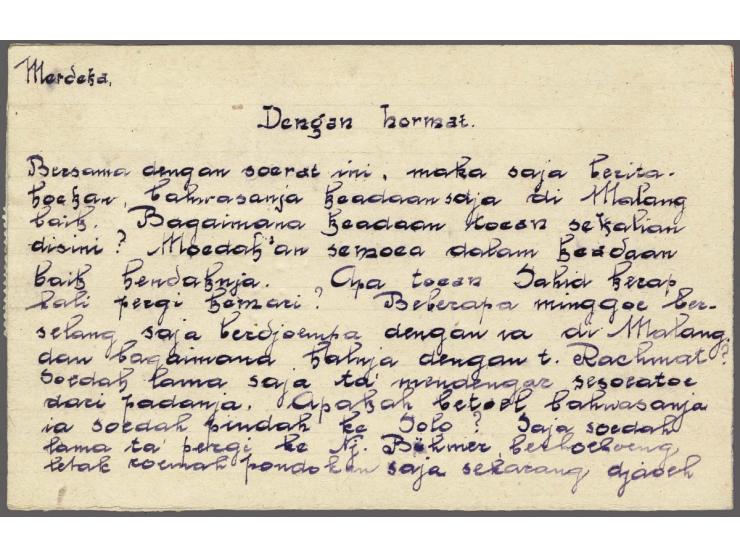 Merdeka.
Dengan hormat.
Bersama dengan soerat ini, maka saja berita-
hoekan, bahwasanja keadaan saja di Malang
baik. Bagaimana keadaan toean sekalian
disini? Moedah'an semoea dalam keadaan
baik hendaknja. Apa toean Sahid kerap
kali pergi kemari? Beberapa minggoe ber-
selang saja berdjoempa dengan ia di Malang.
dan bagaimana halnja dengan t. Rachmat?
Soedah lama saja ta' mendengar sesoeatoe
dari padanja. Apakah betoel bahwasanja
ia soedah pindah ke Solo? Saja soedah
lama ta' pergi ke Nj. Böhmer, berhoeboeng
letak roemah pondokan saja sekarang djaoeh